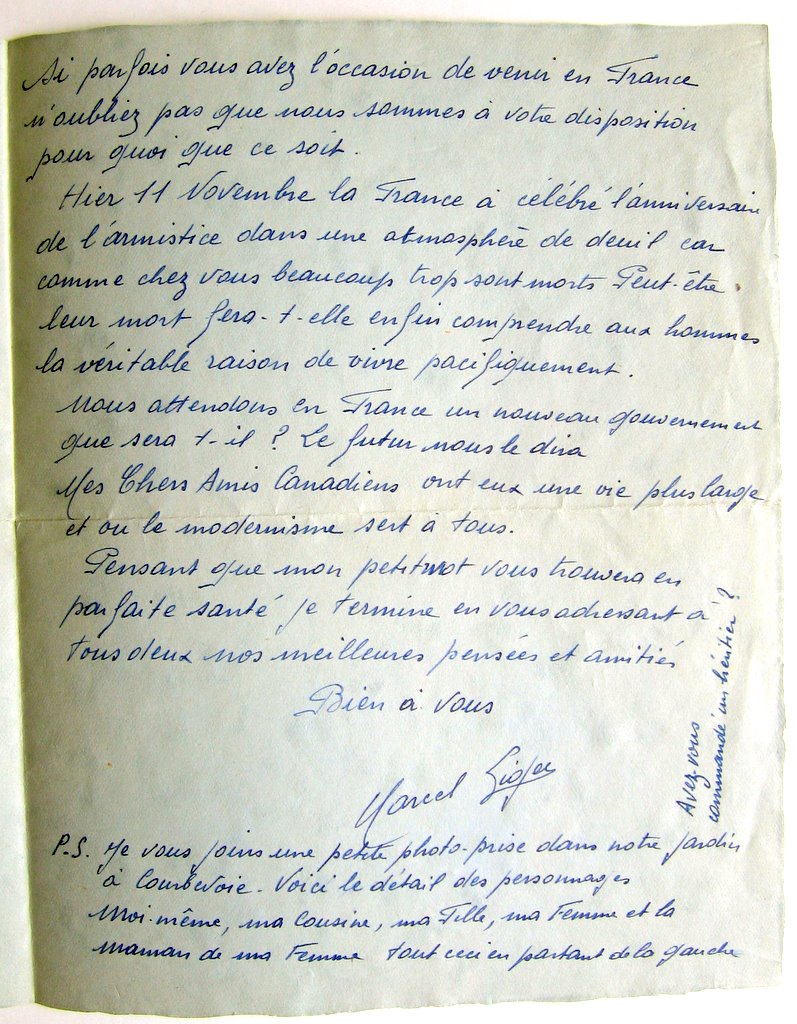 Si parfois vous avez l'occasion de venir en France
n'oubliez pas que nous sommes à votre disposition
pour quoi que ce soit.
Hier 11 Novembre la France à célébré l'anniversaire
de l'armistice dans une atmosphère de deuil car
comme chez vous beaucoup trop sont morts Peut-être
leur mort fera-t-elle enfin comprendre aux hommes
la véritable raison de vivre pacifiquement.
Nous attendons en France un nouveau gouvernement
que sera t-il ? Le futur nous le dira
Mes Chers Amis Canadiens ont eux une vie plus large
et ou le modernisme sert à tous.
Pensant que mon petit mot vous trouvera en
parfaite santé je termine en vous adressant à
tous deux nos meilleures pensées et amitiés
Bien à vous
Marcel
Avez vous
commandé un héritier ?
P.S. Je vous joins une petite photo prise dans notre jardin
à Courbevoie. Voici le détail des personnages
Moi-même, ma Cousine, ma Fille, ma Femme et la
maman de ma Femme tout ceci en partant de la gauche